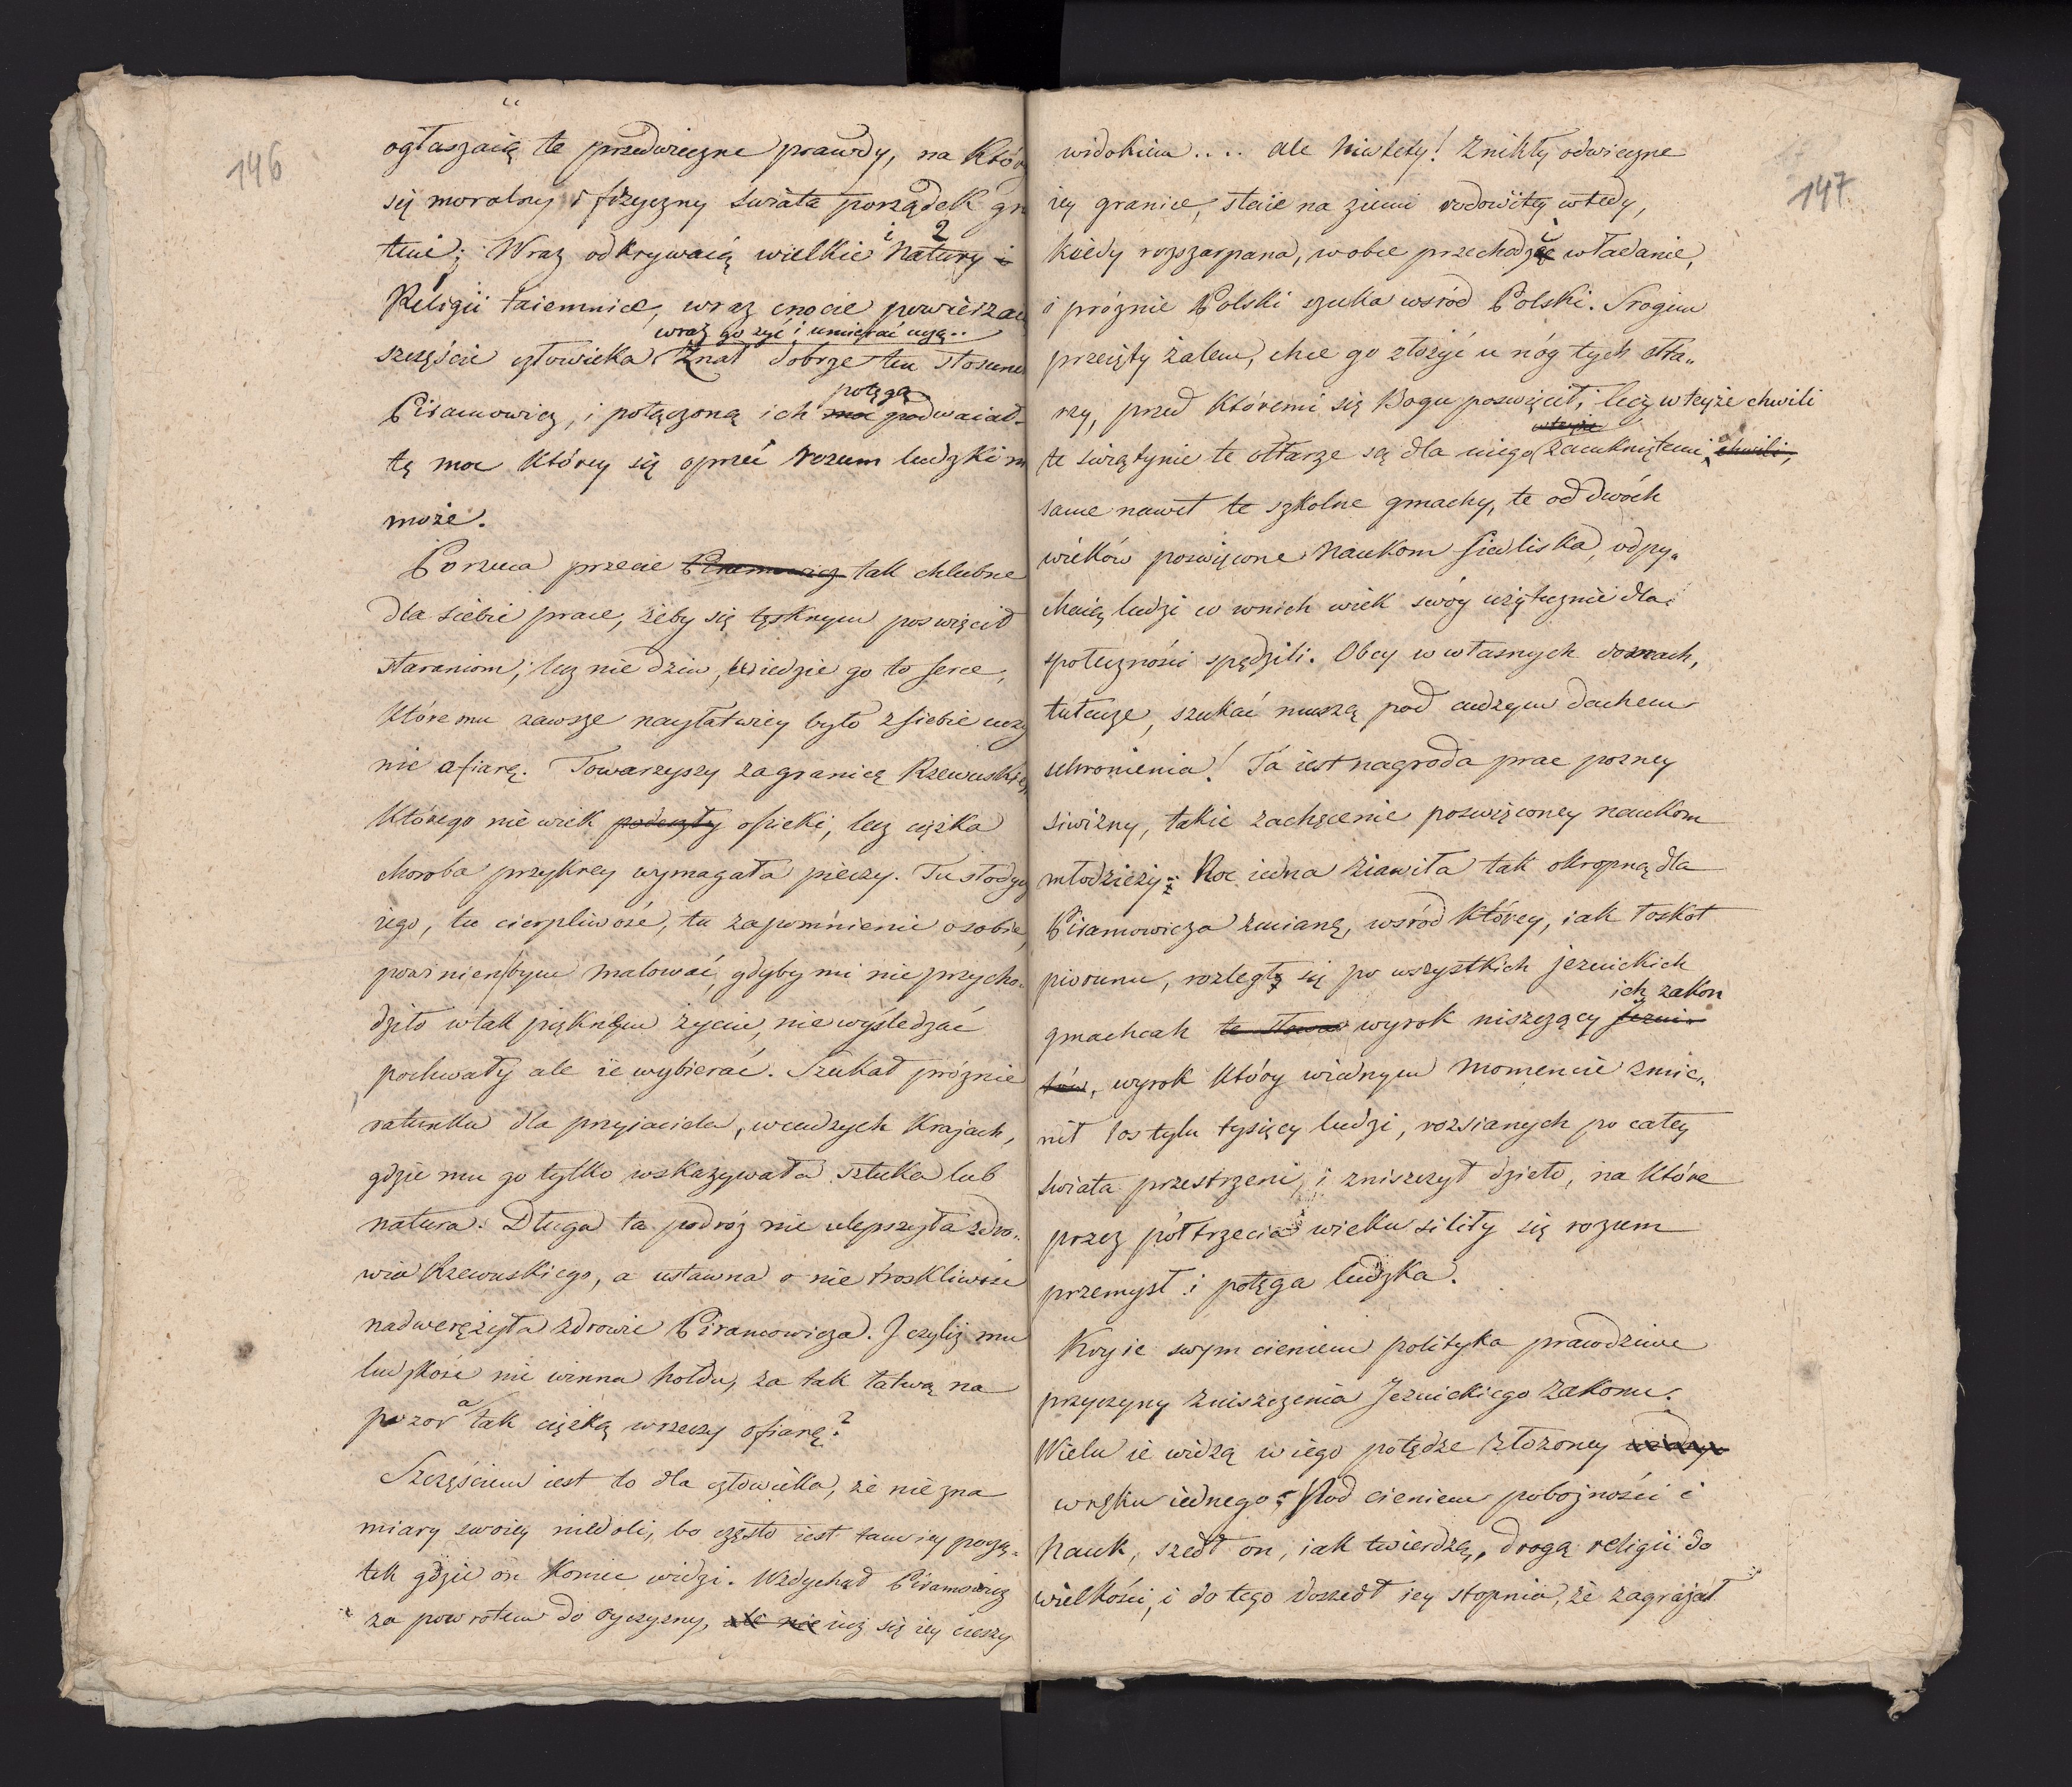 146
ogłaszaią te przedwieczne prawdy, na któr
się moralny i fizyczny swiata porządek gr
tuie; Wraz odkrywaią wielkie i Natury i
2
Religii taiemnice, wraz cnocie powierzai
wraz go zyć i umierać uczą..
szczęście człowieka. Znał dobrze ten stosune
potęgą
Piramowicz, i połączoną ich moc podwaiał
tę moc którey się oprzeć rozum ludzki n
może.
Porzuca przecie Piramowicz tak chlubne
dla siebie prace, żeby się tęsknym poswięcił
staraniom; lecz nie dziw, wiedzie go to serce,
któremu zawsze nayłatwiey było z siebie uczy
nić ofiarę. Towarzyszy zagranicę Rzewuskie
którego nie wiek podeszły opieki, lecz ciężka
choroba przykrey wymagała pieczy. Tu słodycz
iego, tu cierpliwość, tu zapomnienie o sobie
powinienbym malować, gdyby mi nie przycho„
dziło w tak pięknym życiu, nie wyśledzać
pochwały ale ie wybierać. Szukał próznie
ratunku dla przyjaciela, w cudzych krajach,
gdzie mu go tylko wskazywała sztuka lub
natura. Długa ta podróż nie ulepszyła zdro„
wia Rzewuskiego, a ustawna o nie troskliwość
nadwerężyła zdrowie Piramowicza. J czyliż mu
ludzkość nie winna hołdu, za tak łatwą na
pozor a tak ciężką w rzeczy ofiarę?
Szczęściem iest to dla człowieka, że nie zna
miary swoiey niedoli, bo często iest tam iey począ„
tek gdzie on koniec widzi. Wzdychał Piramowicz
za powrotem do oyczyzny, ale nie iuż się iey cieszy
147
widokiem .... ale Niestety! Znikły odwieczne
iey granice, staie na ziemi rodowitey wtedy,
kiedy rozszarpana, w obce przechodzi władanie,
i próznie Polski szuka wsród Polski. Srogim
przeięty żalem, chce go złożyć u nóg tych ołta„
rzy, przed któremi się Bogu poswięcił, lecz w teyże chwili
wteyże
te świątynie te ołtarze są dla niego zamkniętemi, chwili,
same nawet te szkolne gmachy, te od dwóch
wieków poswięcone Naukom siedliska, odpy„
chaią ludzi co w nich wiek swóy użytecznie dla
społeczności spędzili. Obcy w własnych domach,
tułacze, szukać muszą pod cudzym dachem
schronienia! Ta iest nagroda prac pozney
siwizny, takie zachęcenie poswięconey naukom
młodzieży. Noc iedna ziawiła tak okropną dla
Piramowicza zmianę, wsród którey, iak łoskot
piorunu, rozległ się po wszystkich jezuickich
ich zakon
gmachach te słowa wyrok niszczący Jezui„
tów, wyrok który w iednym momencie zmie„
nił los tylu tysięcy ludzi, rozsianych po całey
swiata przestrzeni, i zniszczył dzieło, na które
przez półtrzecia wieku siliły się rozum
przemysł i potęga ludzka.
Kryie swym cieniem polityka prawdziwe
przyczyny zniszczenia Jezuickiego zakonu.
Wielu ie widzą w iego potędze złożoney
w ręku iednego. Pod cieniem pobożności i
Nauk, szedł on, iak twierdzą, drogą religii do
wielkości, i do tego doszedł iey stopnia, że zagrażał